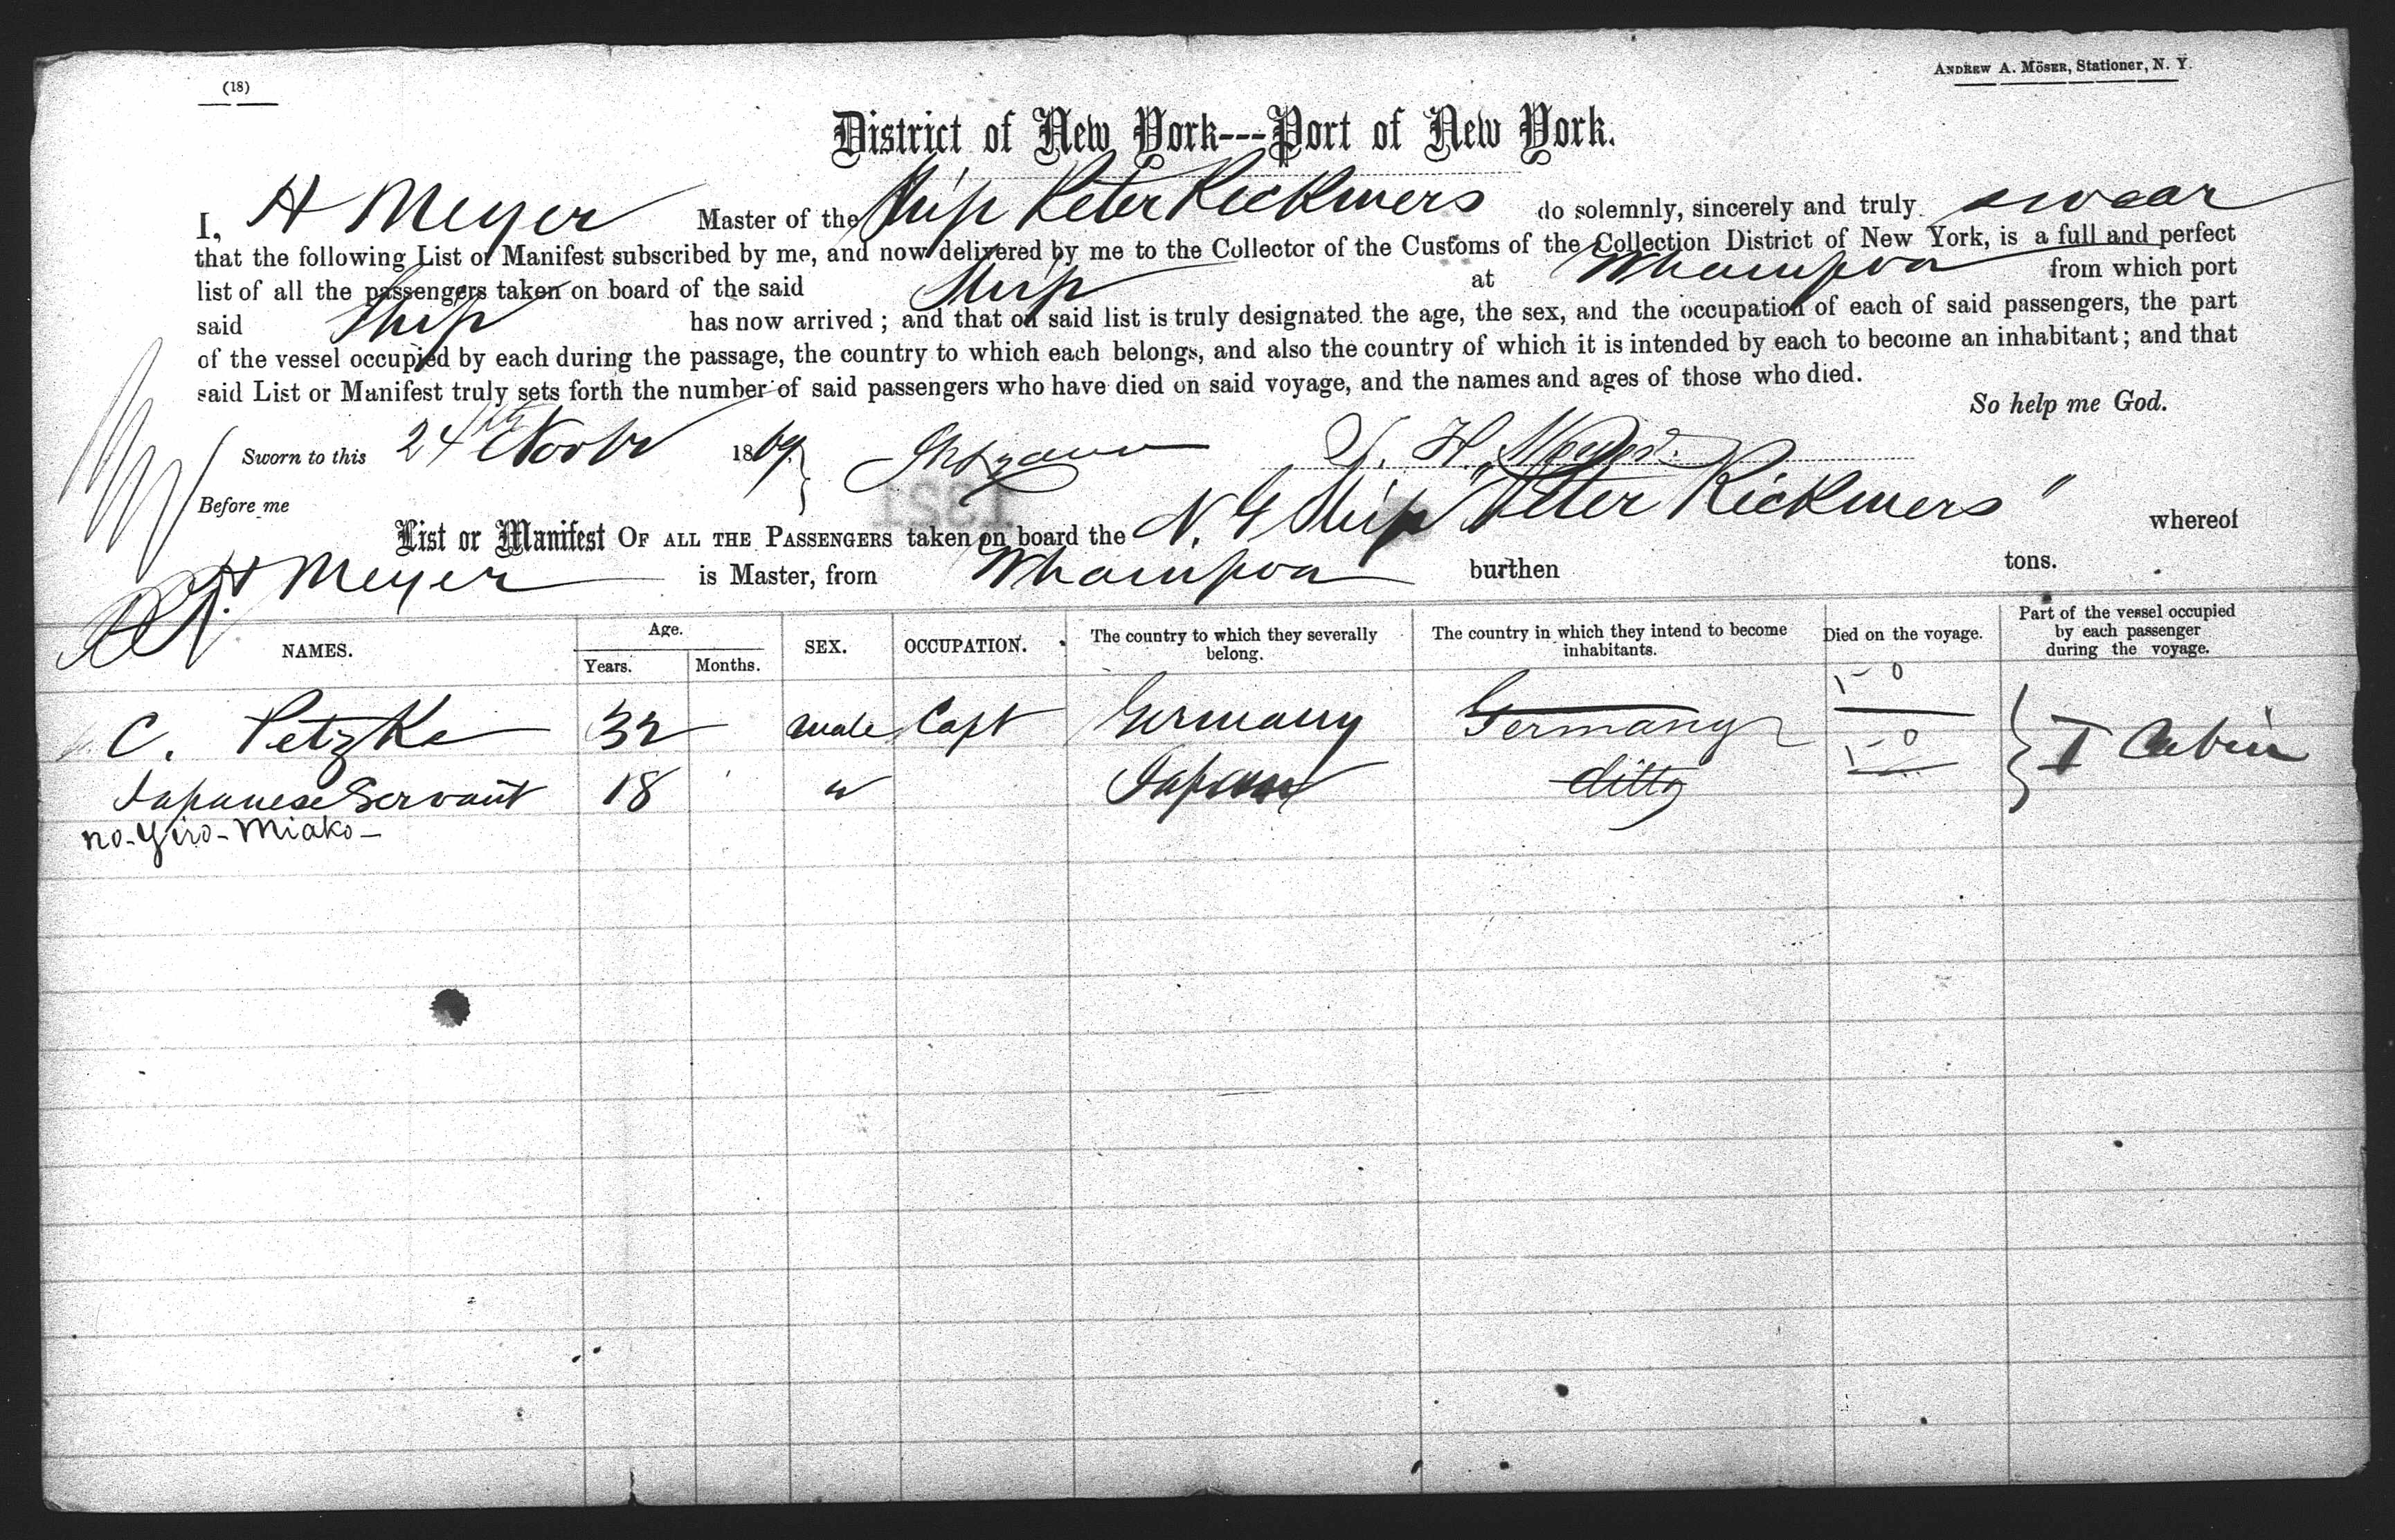 (18)
ANDREW A. MÖSER, Stationer, N. Y.
District of New York---Port of New York.
I, H Meyer Master of the Ship Peter Rickmers do solemnly, sincerely and truly swear
that the following List or Manifest subscribed by me, and now delivered by me to the Collector of the Customs of the Collection District of New York, is a full and perfect
list of all the passengers taken on board of the said Ship at Whampoa from which port
said Ship has now arrived; and that on said list is truly designated the age, the sex, and the occupation of each of said passengers, the part
of the vessel occupied by each during the passage, the country to which each belongs, and also the country of which it is intended by each to become an inhabitant; and that
said List or Manifest truly sets forth the number of said passengers who have died on said voyage, and the names and ages of those who died.
So help me God.
Sworn to this 24th Novbr 1869 H. Meyer
Before me
List or Manifest OF ALL THE PASSENGERS taken on board the N. G Ship "Peter Rickmers" whereof
H Meyer is Master, from Whampoa burthen tons.
NAMES. Age. Years. Months. SEX. OCCUPATION. The country to which they severally belong. The country in which they intend to become inhabitants. Died on the voyage. Part of the vessel occupied by each passenger during the voyage.
C. Petzka 32 male Capt Germany Germany 0 I Cabin
Japanese Servant 18 " Japan ditto 0
no-Yiro-Miako-